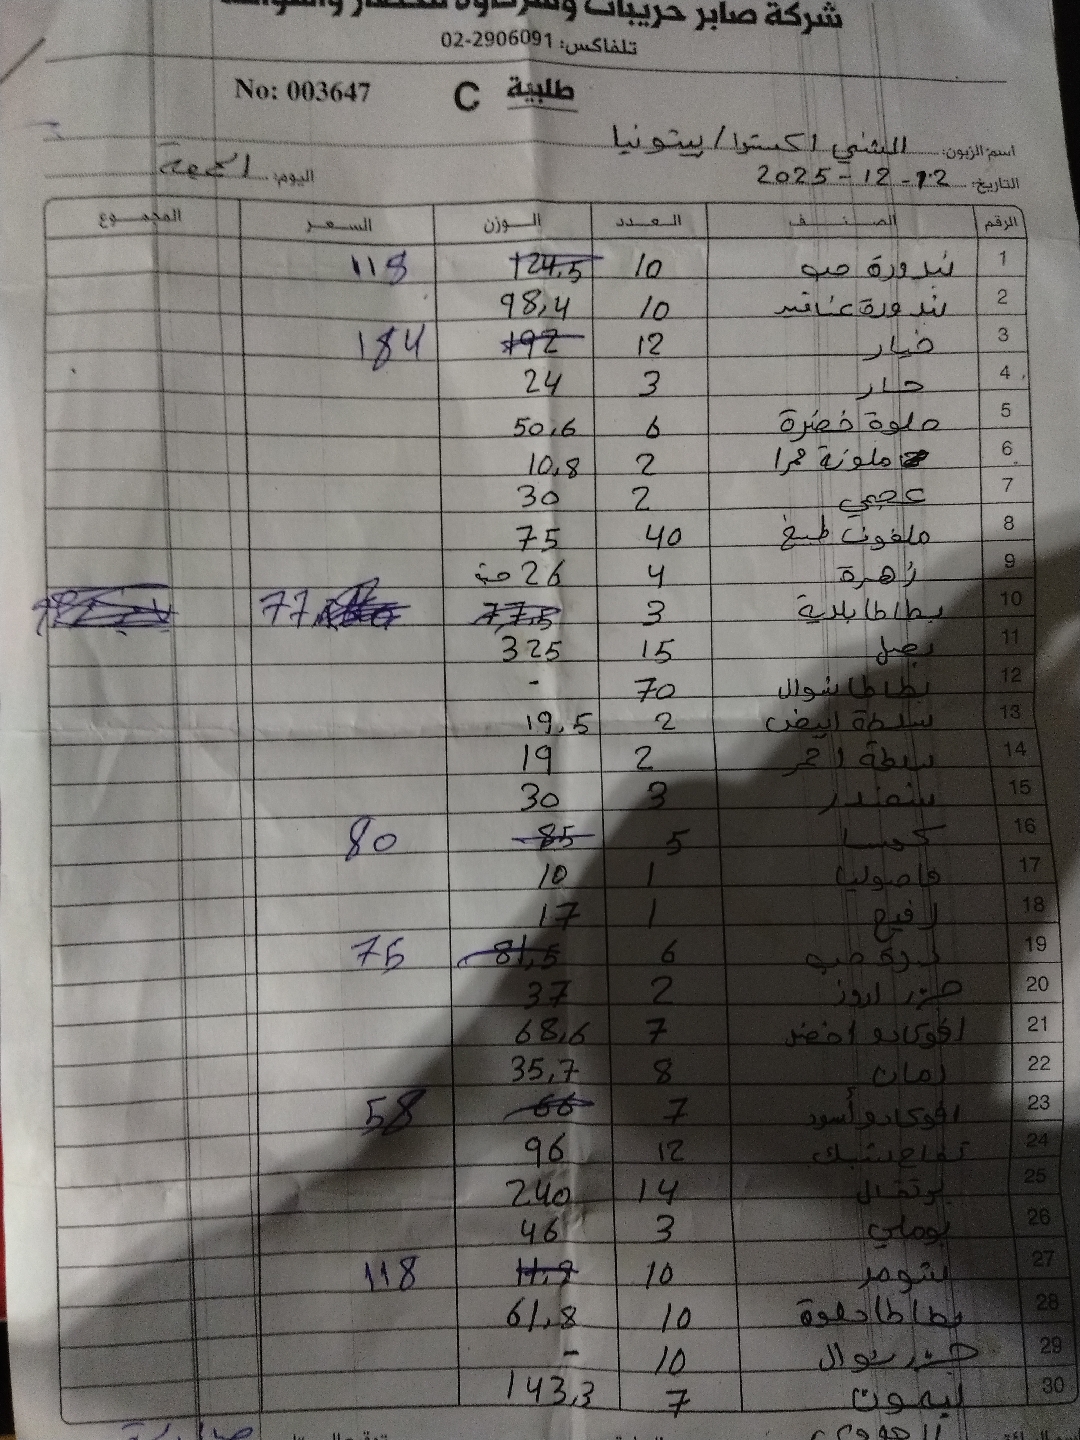 شركة صابر حريبات وشركاؤه للخضار والفواكه
تلفاكس: 02-2906091
No: 003647 C طلبية
اسم الزبون: الشني اكسترا / بيتونيا
التاريخ: 12-12-2025 اليوم: الجمعة
الرقم الصنف العدد الوزن السعر المجموع
1 بندورة حب 10 124,5 118
2 بندورة عناقيد 10 98,4
3 خيار 12 192 184
4 حار 3 24
5 حلوة خضرة 6 50,6
6 ملونة حمرا 2 10,8
7 عجمي 2 30
8 ملفوف طبخ 40 75
9 زهرة 4 26 حبة
10 بطاطا بلدية 3 77,5 77
11 بصل 15 325
12 بطاطا شوال 70 -
13 سلطة ابيض 2 19,5
14 سلطة احمر 2 19
15 شمندر 3 30
16 كوسا 5 85 80
17 فاصوليا 1 10
18 1 17
19 ذرة حب 6 81,5 75
20 جزر اروز 2 37
21 افوكادو اخضر 7 68,6
22 رمان 8 35,7
23 افوكادو أسود 7 66 58
24 تفاح شبك 12 96
25 برتقال 14 240
26 بوملي 3 46
27 شومر 10 118
28 بطاطا حلوة 10 61,8
29 جزر شوال 10 -
30 ليمون 7 143,3